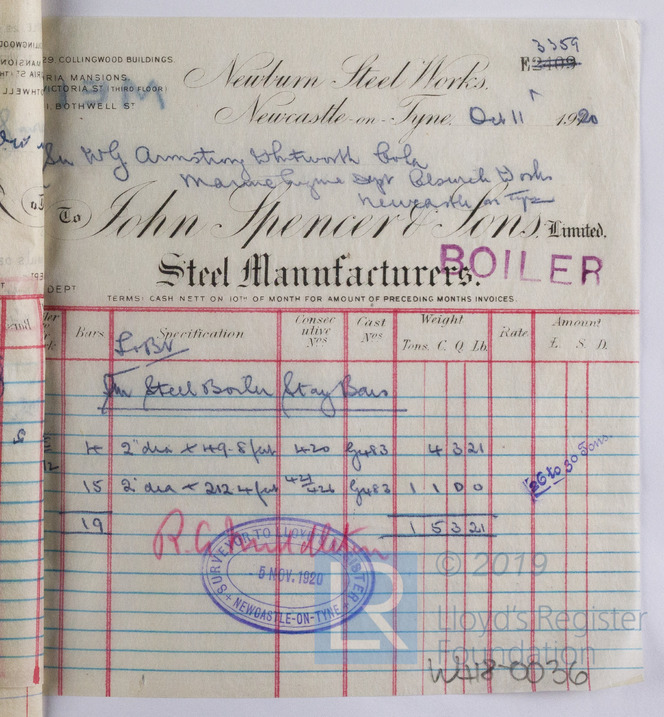 29 COLLINGWOOD BUILDINGS.
RIA MANSIONS.
VICTORIA ST (THIRD FLOOR)
BOTHWELL ST
3359
E2409
Newburn Steel Works.
Newcastle-on-Tyne. Oct 11 1920
Sir WG Armstrong Whitworth Co Ld
Marine Engine Dept Elswick Works
Newcastle on Tyne
To John Spencer & Sons, Limited.
Steel Manufacturers.
BOILER
DEPT
TERMS: CASH NETT ON 10TH OF MONTH FOR AMOUNT OF PRECEDING MONTHS INVOICES.
Bars Specification Consecutive Nos Cast Nos Weight Rate Amount
Tons. C. Q. Lb. £. S. D.
Sm Steel Boiler Stay Bars
4 2" dia × 49-8 feet 420 G483 4 3 21
15 2" dia × 212 4 feet 421/426 G483 1 1 0 0
26 to 30 Tons.
19 1 5 3 21
R. G. Middleton
SURVEYOR TO LLOYD'S REGISTER
5 NOV. 1920
NEWCASTLE-ON-TYNE
© 2019
LR
Lloyd's Register
Foundation
W418-0036